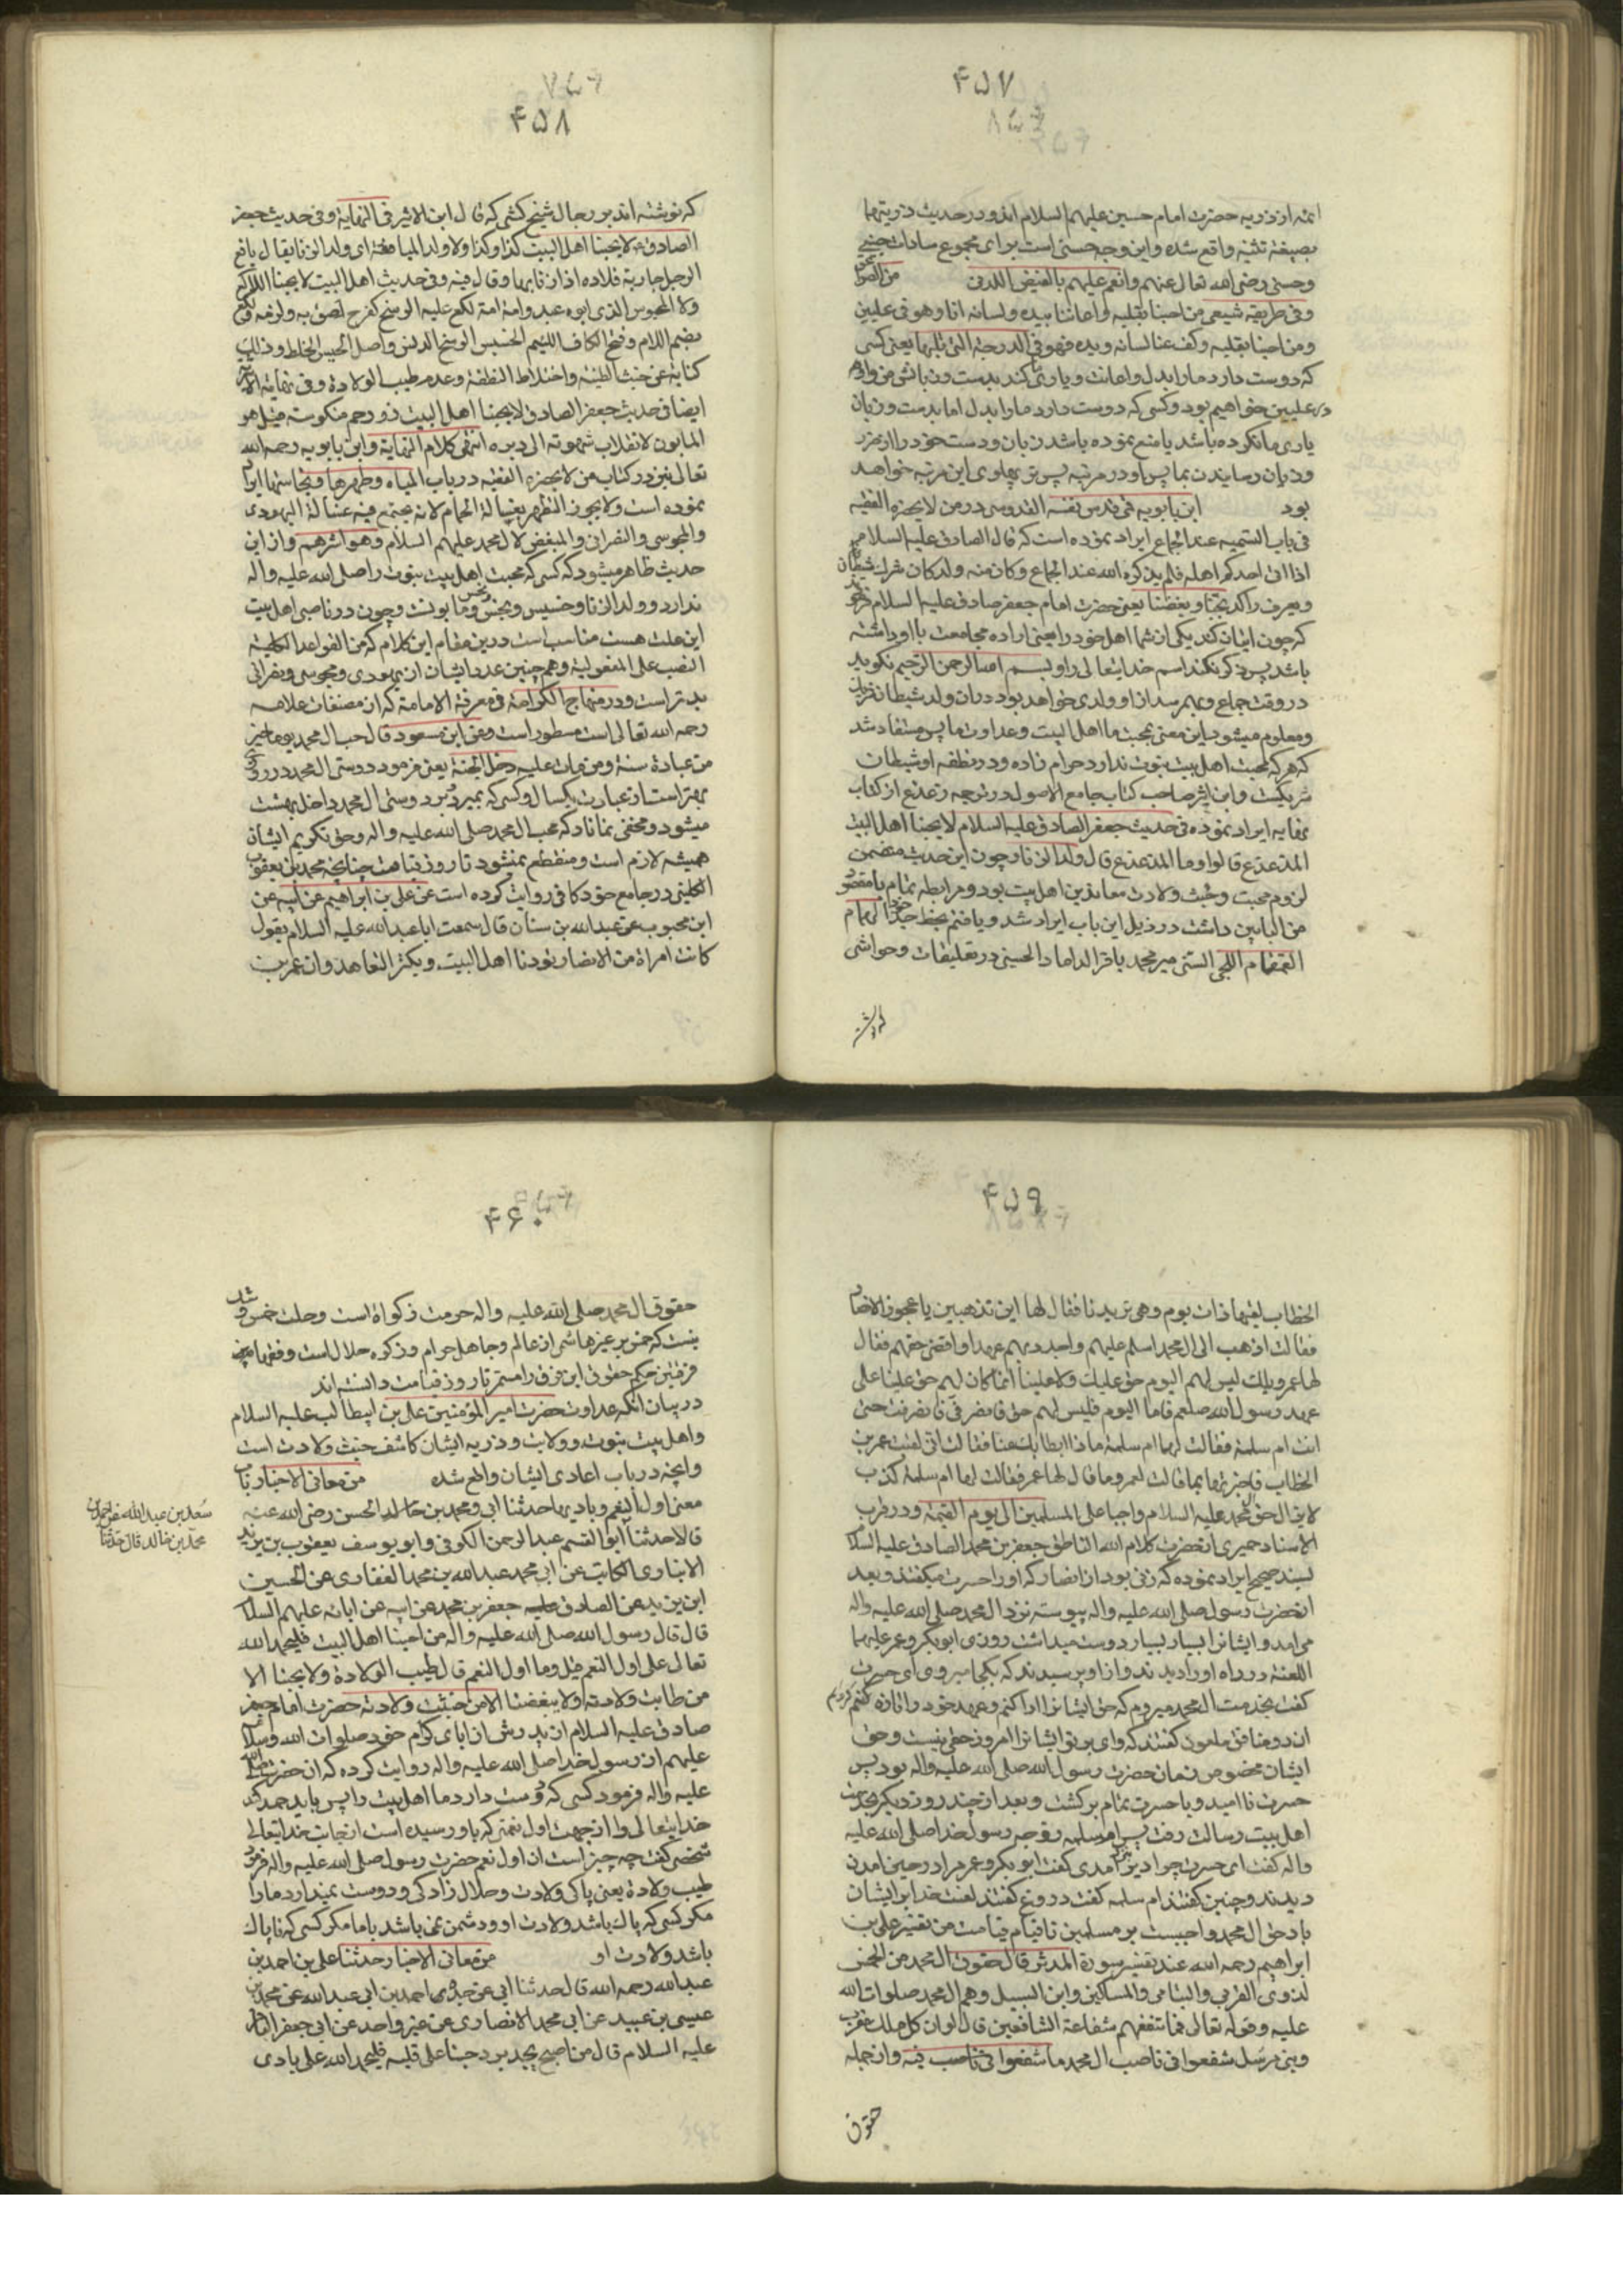 ۴۵۷
ائمه از ذریه حضرت امام حسین علیهم السلام اند و در حدیث ذریتهما
بصیغه تثنیه واقع شده و این وجه حسنی است برای مجموع سادات حسینی
وحسنی رضی الله تعالی عنهم وانعم علیهم بالفیض اللدنی من
وفی طریقه شیعی من احبنا بقلبه واعاننا بیده ولسانه انا وهو فی علیین
ومن احبنا بقلبه وکف عنا لسانه ویده فهو فی الدرجة التی تلیها یعنی کسی
که دوست دارد ما را بدل واعانت ویاری کند بدست وزبانش من واو هم
در علیین خواهیم بود وکسی که دوست دارد ما را بدل اما بدست وزبان
یاری ما نکرده باشد یا منع نموده باشد زبان ودست خود را از ضرر
وزیان رسانیدن بما پس او در مرتبه پس تر پهلوی این مرتبه خواهد
بود ابن بابویه قدس نفسه القدوسی در من لا یحضره الفقیه
فی باب التسمیه عند الجماع ایراد نموده است که قال الصادق علیه السلام
اذا اتی احدکم اهله فلم یذکر الله عند الجماع وکان منه ولد کان شرک شیطان
ویعرف ذاک بحبنا وبغضنا یعنی حضرت امام جعفر صادق علیه السلام فرمود
که چون اتیان کند یکی از شما اهل خود را یعنی اراده مجامعت با او داشته
باشد پس ذکر نکند اسم خدایتعالی را وبسم الله الرحمن الرحیم نکوید
در وقت جماع وبهم رسد از او ولدی خواهد بود در ان ولد شیطان شریک
ومعلوم میشود این معنی بمحبت ما اهل البیت وعداوت ما پس مستفاد شد
که هر که محبت اهل بیت نبوت ندارد حرام زاده ودر نطفه او شیطان
شریکست وابن اثیر صاحب کتاب جامع الاصول در ترجمه زعذع از کتاب
نهایه ایراد نموده فی حدیث جعفر الصادق علیه السلام لا یحبنا اهل البیت
المذعذع قالوا وما المذعذع قال ولد الزنا وچون این حدیث متضمن
لزوم محبت وخبث ولادت معاندین اهل بیت بود ومرابطه تمام با مقصود
من البابین داشت در ذیل این باب ایراد شد ویافتم بخط جد خود الهمام
القمقام اللجی السنی میر محمد باقر الداماد الحسینی در تعلیقات وحواشی
که نوشته
۴۵۸
که نوشته اند بر رجال شیخ کشی که قال ابن الاثیر فی النهایة وفی حدیث جعفر
الصادق ع لا یحبنا اهل البیت کذا وکذا ولا ولد المیافعة ای ولد الزنا یقال یافع
الرجل جاریة فلان اذا زنا بها وقال فیه وفی حدیث اهل البیت لا یحبنا اللکع
ولا المحیوس الذی ابوه عبد وامه امة لکع علیه الوسخ کفرح لصق به ولزمه
بضم اللام وفتح الکاف اللئیم الخسیس الوسخ الدنس واصل الحیس الخلط وذلک
کنایة عن خبث الطینة واختلاط النطفة وعدم طیب الولادة وفی نهایة
ایضا فی حدیث جعفر الصادق لا یحبنا اهل البیت ذو رحم منکوسة قیل هو
المابون لانقلاب شهوته الی دبره انتهی کلام النهایة وابن بابویه رحمه الله
تعالی نیز در کتاب من لا یحضره الفقیه در باب المیاه وطهرها ونجاستها ایراد
نموده است ولا یجوز التطهر بغسالة الحمام لانه یجتمع فیه غسالة الیهودی
والمجوسی والنصرانی والمبغض لال محمد علیهم السلام وهو اشرهم واز این
حدیث ظاهر میشود که کسی که محبت اهل بیت نبوت را صلی الله علیه واله
ندارد وولد الزنا وخسیس ونجس ومابونست وچون در ناصبی اهل بیت
این علت هست مناسب است درین مقام این کلام که من القواعد الکلیة
النصب علی المفعولیة وهم چنین عدو ایشان از یهودی ومجوسی ونصرانی
بدتر است ودر منهاج الکرامة فی معرفة الامامة که از مصنفات علامه
رحمه الله تعالی است مسطور است وعن ابن مسعود قال حب ال محمد یوما خیر
من عبادة سنة ومن مات علیه دخل الجنة یعنی فرمود دوستی ال محمد در روزی
بهتر است از عبادت یکسال وکسی که بمیرد بر دوستی ال محمد داخل بهشت
میشود ومخفی نماناد که محب ال محمد صلی الله علیه واله وحق تکریم ایشان
همیشه لازم است ومنقطع نمیشود تا روز قیامت چنانچه محمد بن یعقوب
الکلینی در جامع خود کافی روایت کرده است عن علی بن ابراهیم عن ابیه عن
ابن محبوب عن عبدالله بن سنان قال سمعت ابا عبدالله علیه السلام یقول
کانت امراة من الانصار تودنا اهل البیت وتکثر التعاهد وان عمر بن
۴۵۹
الخطاب لقیها ذات یوم وهی تریدنا فقال لها این تذهبین یا عجوز الانصار
فقالت اذهب الی ال محمد اسلم علیهم واجدد بهم عهدا واقضی حقهم فقال
لها عمر ویلک لیس لهم الیوم حق علیک ولا علینا انما کان لهم حق علینا علی
عهد رسول الله صلعم فاما الیوم فلیس لهم حق فانصرفی فانصرفت حتی
اتت ام سلمة فقالت لها ام سلمة ماذا ابطا بک عنا فقالت انی لقیت عمر بن
الخطاب فاخبرتها بما قالت لعمر وما قال لها عمر فقالت لها ام سلمة کذب
لا یزال حق ال محمد علیه السلام واجبا علی المسلمین الی یوم القیمة ودر قرب
الاسناد حمیری از حضرت کلام الله الناطق جعفر بن محمد الصادق علیه السلام
بسند صحیح ایراد نموده که زنی بود از انصار که او را حسرت میکفتند وبعد
از حضرت رسول صلی الله علیه واله پیوسته نزد ال محمد صلی الله علیه واله
می امد وایشانرا بسیار بسیار دوست میداشت روزی ابوبکر وعمر علیهما
اللعنة در راه او را دیدند واز او پرسیدند که بکجا میروی ای حسرت
کفت بخدمت ال محمد میروم که حق ایشانرا ادا کنم وعهد خود را تازه کنم
ان دو منافق ملعون کفتند که وای بر تو ایشانرا امروز حقی نیست وحق
ایشان مخصوص زمان حضرت رسول الله صلی الله علیه واله بود پس
حسرت ناامید وبا حسرت تمام برکشت وبعد از چند روز دیکر بخدمت
اهل بیت رسالت رفت پس ام سلمه زوجه رسول خدا صلی الله علیه
واله کفت ای حسرت چرا دیر امدی کفت ابوبکر وعمر مرا در حین امدن
دیدند وچنین کفتند ام سلمه کفت دروغ کفتند لعنت خدا بر ایشان
باد حق ال محمد واجبست بر مسلمین تا قیام قیامت من تفسیر علی بن
ابراهیم رحمه الله عند تفسیر سورة المدثر قال حقوق ال محمد من الخمس
لذوی القربی والیتامی والمساکین وابن السبیل وهم ال محمد صلوات الله
علیه وقوله تعالی فما تنفعهم شفاعة الشافعین قال لو ان کل ملک مقرب
ونبی مرسل شفعوا فی ناصب ال محمد ما شفعوا فی ناصب فیه واز جمله
حقوق
۴۶۰
حقوق ال محمد صلی الله علیه واله حرمت زکواة است وحلت خمس وشک
نیست که خمس بر غیر هاشمی از عالم وجاهل حرام وزکوة حلال است وفقهاء
فریقین حکم حقوق این فرق را مستمر تا روز قیامت دانسته اند
در بیان انکه عداوت حضرت امیر المؤمنین علی بن ابیطالب علیه السلام
واهل بیت نبوت وولایت وذریه ایشان کاشف خبث ولادت است
وانچه در باب اعادی ایشان واقع شده من معانی الاخبار باب
معنی اول النعم وبادیها حدثنا ابی ومحمد بن الحسن رضی الله عنه
قالا حدثنا ابو القسم عبد الرحمن الکوفی وابو یوسف یعقوب بن یزید
الانباری الکاتب عن ابی محمد عبدالله بن محمد الغفاری عن الحسین
ابن یزید عن الصادق علیه جعفر بن محمد عن ابیه عن ابائه علیهم السلام
قال قال رسول الله صلی الله علیه واله من احبنا اهل البیت فلیحمد الله
تعالی علی اول النعم قیل وما اول النعم قال طیب الولادة ولا یحبنا الا
من طابت ولادته ولا یبغضنا الا من خبثت ولادته حضرت امام جعفر
صادق علیه السلام از پدرش از ابای کرام خود صلوات الله وسلامه
علیهم از رسول خدا صلی الله علیه واله روایت کرده که ان حضرت صلی الله
علیه واله فرمود کسی که دوست دارد ما اهل بیت را پس باید حمد کند
خدایتعالی را از جهت اول نعمتی که باو رسیده است از جانب خدایتعالی
شخصی کفت چه چیز است ان اول نعم حضرت رسول صلی الله علیه واله فرمود
طیب ولادة یعنی پاکی ولادت وحلال زادکی ودوست نمیدارد ما را
مکر کسی که پاک باشد ولادت او ودشمن نمی باشد با ما مکر کسی که ناپاک
باشد ولادت او من معانی الاخبار حدثنا علی بن احمد بن
عبدالله رحمه الله قال حدثنا ابی عن جدی احمد بن ابی عبدالله عن محمد بن
عیسی بن عبید عن ابی محمد الانصاری عن غیر واحد عن ابی جعفر الباقر
علیه السلام قال من اصبح یجد برد حبنا علی قلبه فلیحمد الله علی بادی
سعد بن عبدالله عن احمد بن
محمد بن خالد قال حدثنا